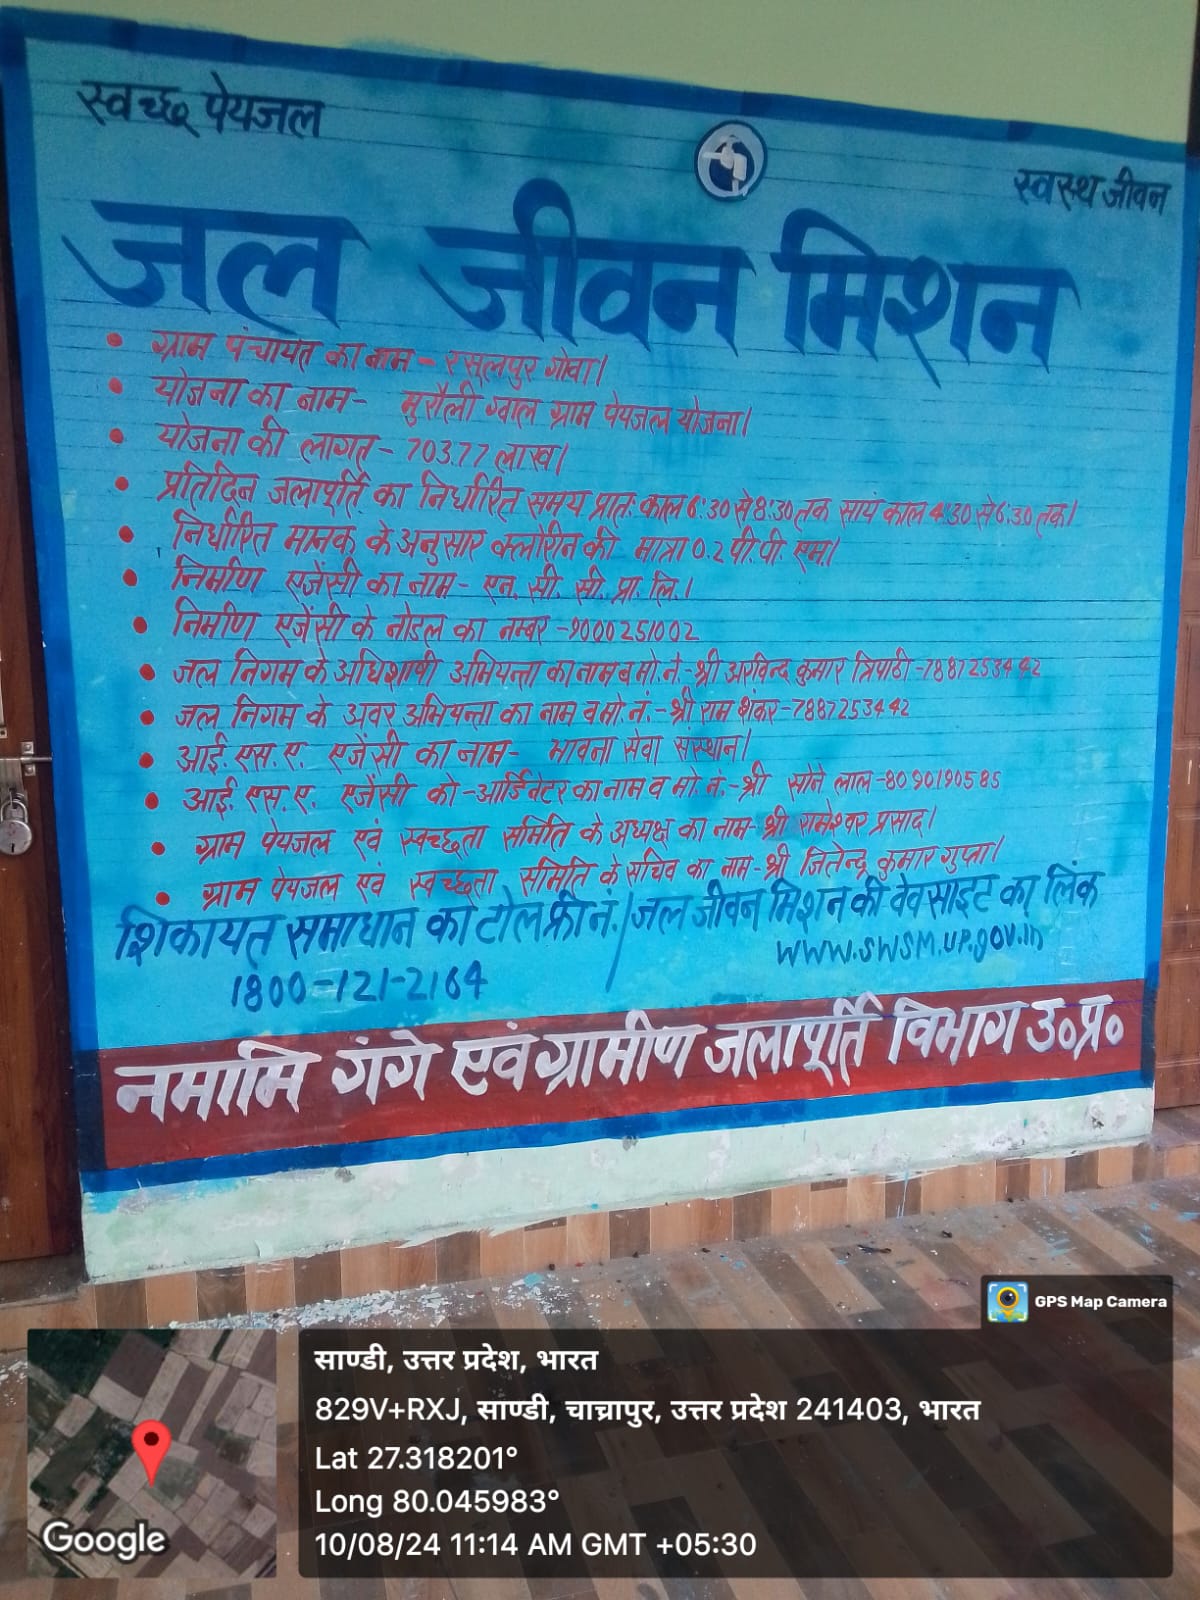 स्वच्छ पेयजल
स्वस्थ जीवन
जल जीवन मिशन
• ग्राम पंचायत का नाम - रसूलपुर गोवा।
• योजना का नाम - मुरौली ग्वाल ग्राम पेयजल योजना।
• योजना की लागत - 703.77 लाख।
• प्रतिदिन जलापूर्ति का निर्धारित समय प्रातः काल 6:30 से 8:30 तक सायं काल 4:30 से 6:30 तक।
• निर्धारित मानक के अनुसार क्लोरीन की मात्रा 0.2 पी.पी. एम।
• निर्माण एजेंसी का नाम - एन. सी. सी. प्रा. लि.।
• निर्माण एजेंसी के नोडल का नम्बर - 9000251002
• जल निगम के अधिशाषी अभियन्ता का नाम व मो. नं. - श्री अरविन्द कुमार त्रिपाठी - 7887253442
• जल निगम के अवर अभियन्ता का नाम व मो. नं. - श्री राम शंकर - 7887253442
• आई. एस. ए. एजेंसी का नाम - भावना सेवा संस्थान।
• आई. एस. ए. एजेंसी को-आर्डिनेटर का नाम व मो. नं. - श्री सोने लाल - 8090190585
• ग्राम पेयजल एवं स्वच्छता समिति के अध्यक्ष का नाम - श्री रामेश्वर प्रसाद।
• ग्राम पेयजल एवं स्वच्छता समिति के सचिव का नाम - श्री जितेन्द्र कुमार गुप्ता।
शिकायत समाधान का टोल फ्री नं. / जल जीवन मिशन की वेबसाइट का लिंक
1800-121-2164 www.swsm.up.gov.in
नमामि गंगे एवं ग्रामीण जलापूर्ति विभाग उ०प्र०
GPS Map Camera
साण्डी, उत्तर प्रदेश, भारत
829V+RXJ, साण्डी, चाच्रापुर, उत्तर प्रदेश 241403, भारत
Lat 27.318201°
Long 80.045983°
10/08/24 11:14 AM GMT +05:30
Google